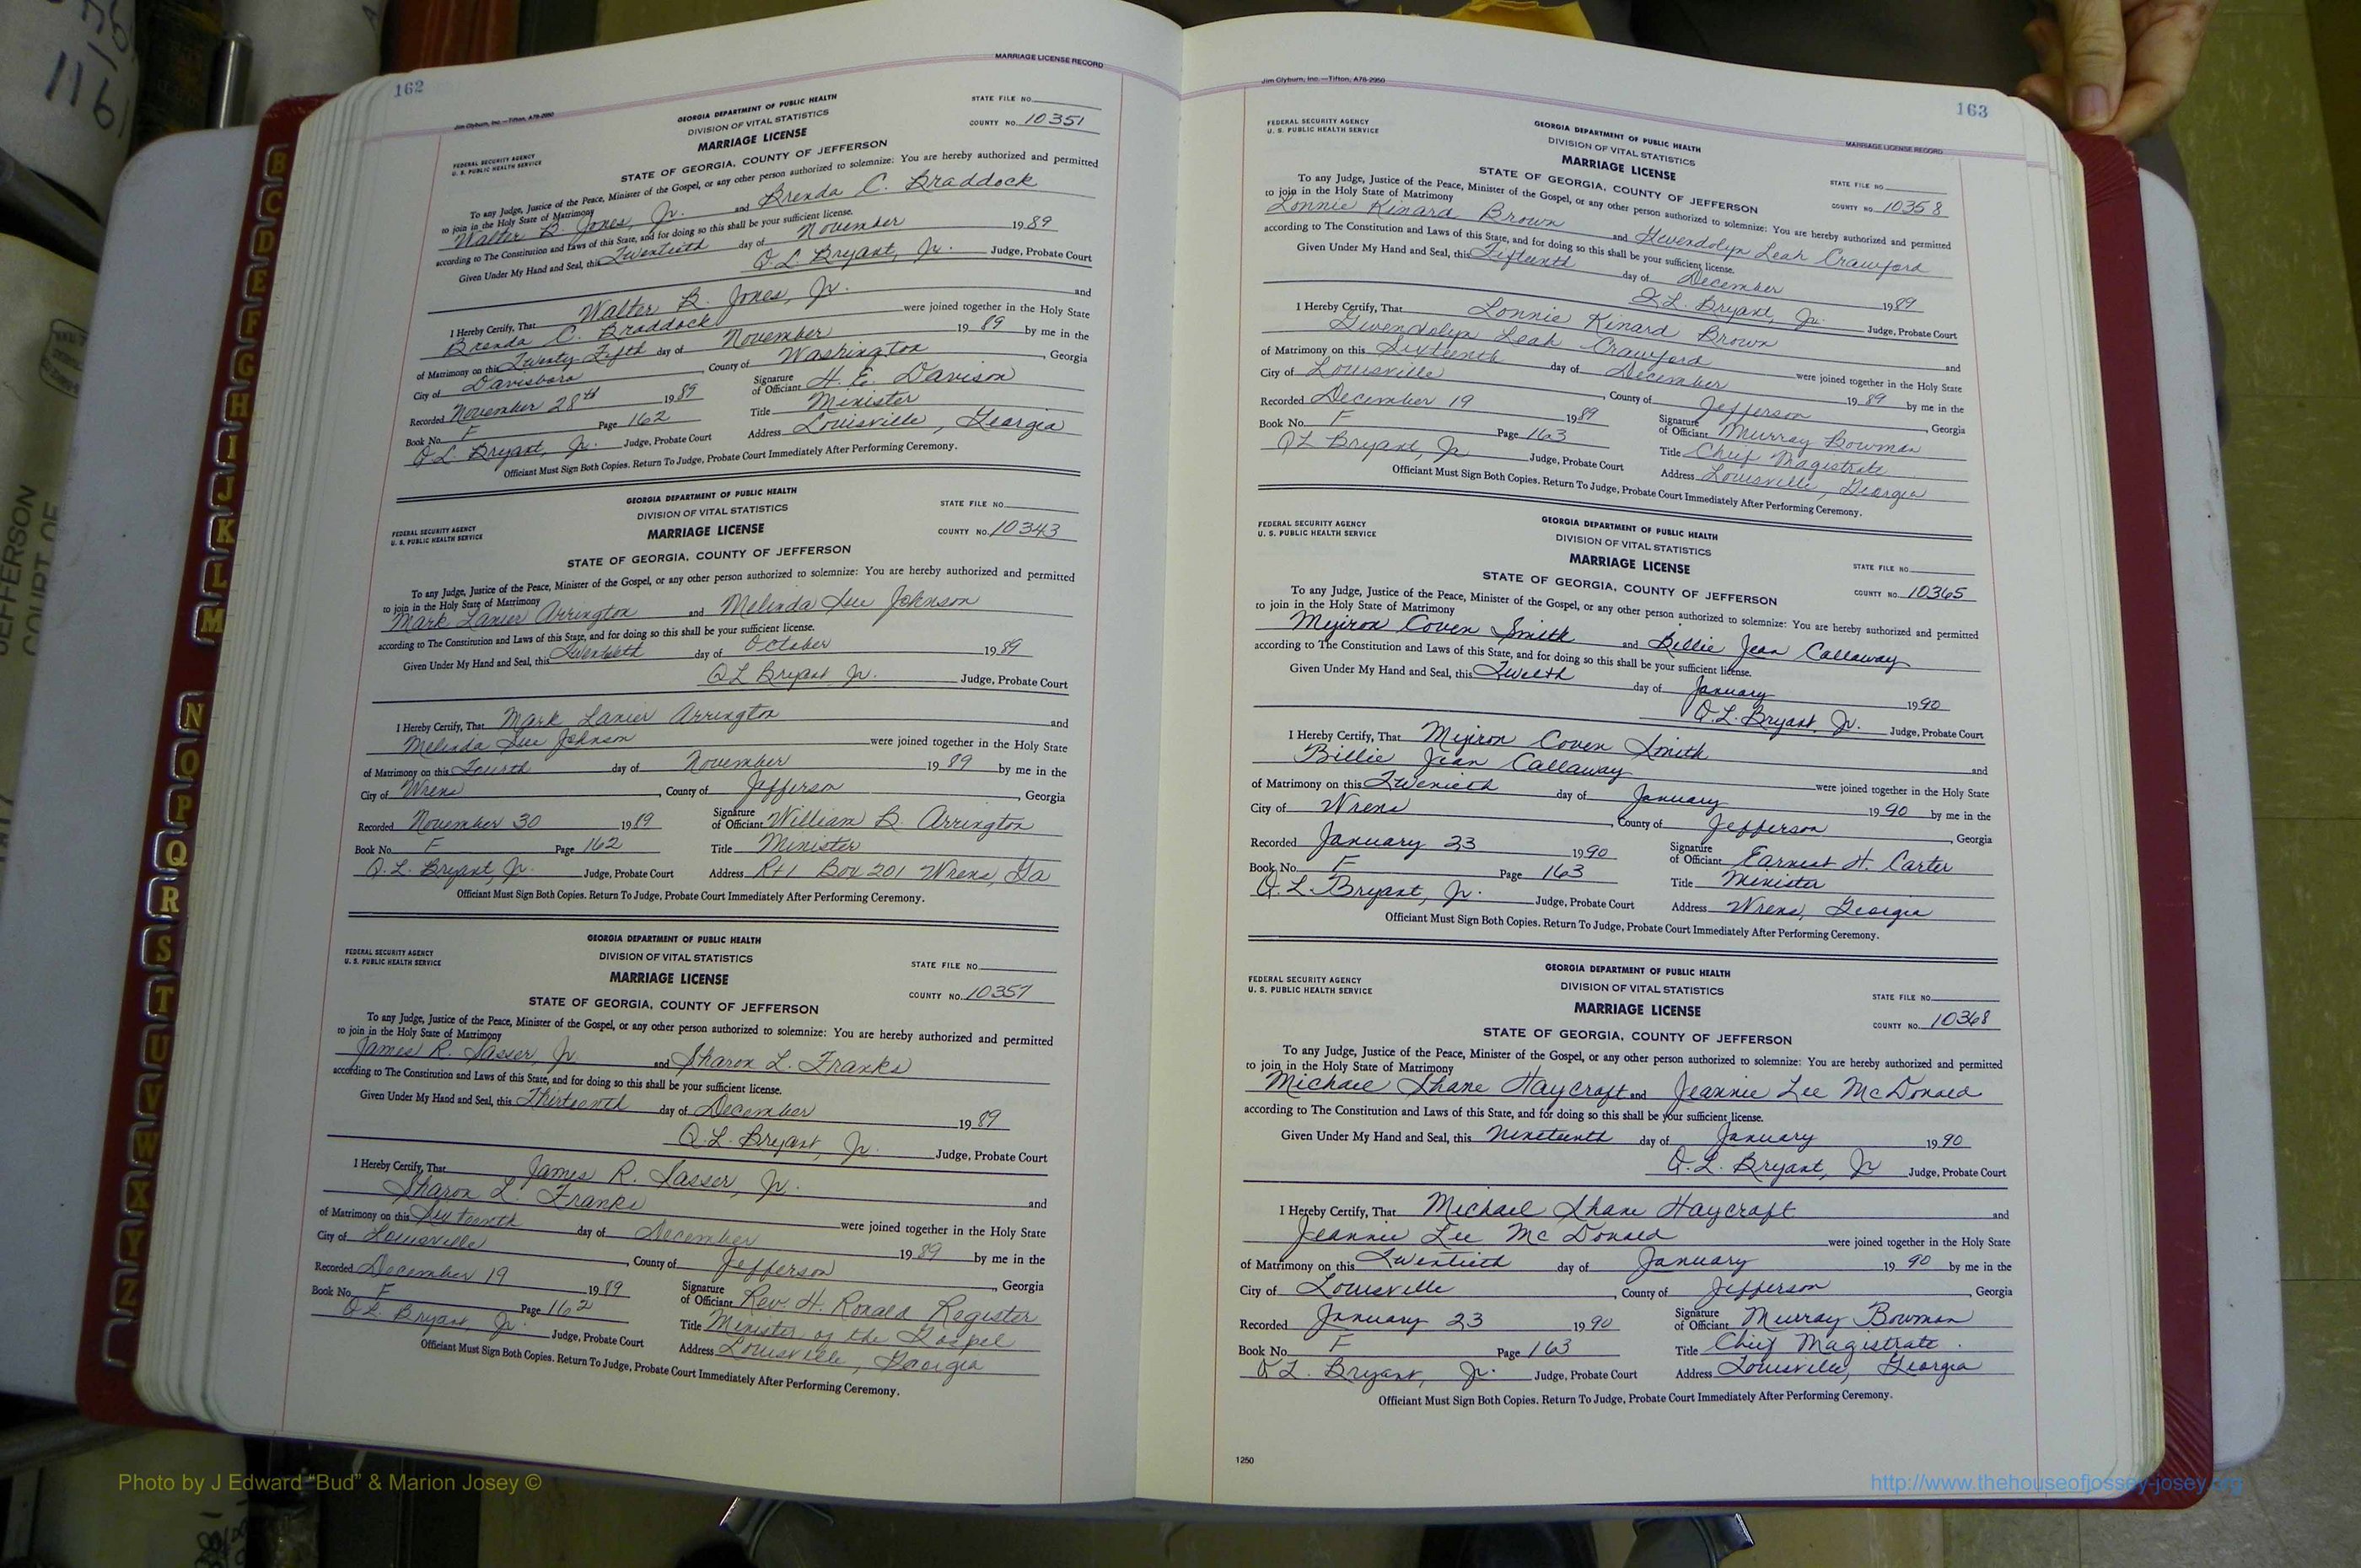 162
MARRIAGE LICENSE RECORD
Jim Clyburn, Inc.—Tifton, A78-2950
GEORGIA DEPARTMENT OF PUBLIC HEALTH
DIVISION OF VITAL STATISTICS
MARRIAGE LICENSE
STATE OF GEORGIA, COUNTY OF JEFFERSON
FEDERAL SECURITY AGENCY
U. S. PUBLIC HEALTH SERVICE
STATE FILE NO.
COUNTY NO. 10351
To any Judge, Justice of the Peace, Minister of the Gospel, or any other person authorized to solemnize: You are hereby authorized and permitted
to join in the Holy State of Matrimony
Walter B. Jones, Jr. and Brenda C. Braddock
according to The Constitution and Laws of this State, and for doing so this shall be your sufficient license.
Given Under My Hand and Seal, this Twentieth day of November 1989
Q. L. Bryant, Jr. Judge, Probate Court
I Hereby Certify, That Walter B. Jones, Jr. and
Brenda C. Braddock were joined together in the Holy State
of Matrimony on this Twenty-Fifth day of November 1989 by me in the
City of Davisboro, County of Washington, Georgia
Recorded November 28th 1989 Signature of Officiant H. E. Davison
Book No. F Page 162 Title Minister
Q. L. Bryant, Jr. Judge, Probate Court Address Louisville, Georgia
Officiant Must Sign Both Copies. Return To Judge, Probate Court Immediately After Performing Ceremony.
GEORGIA DEPARTMENT OF PUBLIC HEALTH
DIVISION OF VITAL STATISTICS
MARRIAGE LICENSE
STATE OF GEORGIA, COUNTY OF JEFFERSON
FEDERAL SECURITY AGENCY
U. S. PUBLIC HEALTH SERVICE
STATE FILE NO.
COUNTY NO. 10343
To any Judge, Justice of the Peace, Minister of the Gospel, or any other person authorized to solemnize: You are hereby authorized and permitted
to join in the Holy State of Matrimony
Mark Lanier Arrington and Melinda Sue Johnson
according to The Constitution and Laws of this State, and for doing so this shall be your sufficient license.
Given Under My Hand and Seal, this Twentieth day of October 1989
Q L Bryant Jr. Judge, Probate Court
I Hereby Certify, That Mark Lanier Arrington and
Melinda Sue Johnson were joined together in the Holy State
of Matrimony on this Fourth day of November 1989 by me in the
City of Wrens, County of Jefferson, Georgia
Recorded November 30 1989 Signature of Officiant William B. Arrington
Book No. F Page 162 Title Minister
Q. L. Bryant, Jr. Judge, Probate Court Address Rt 1 Box 201 Wrens, Ga
Officiant Must Sign Both Copies. Return To Judge, Probate Court Immediately After Performing Ceremony.
GEORGIA DEPARTMENT OF PUBLIC HEALTH
DIVISION OF VITAL STATISTICS
MARRIAGE LICENSE
STATE OF GEORGIA, COUNTY OF JEFFERSON
FEDERAL SECURITY AGENCY
U. S. PUBLIC HEALTH SERVICE
STATE FILE NO.
COUNTY NO. 10357
To any Judge, Justice of the Peace, Minister of the Gospel, or any other person authorized to solemnize: You are hereby authorized and permitted
to join in the Holy State of Matrimony
James R. Sasser, Jr. and Sharon L. Franks
according to The Constitution and Laws of this State, and for doing so this shall be your sufficient license.
Given Under My Hand and Seal, this Thirteenth day of December 1989
Q. L. Bryant, Jr. Judge, Probate Court
I Hereby Certify, That James R. Sasser, Jr. and
Sharon L. Franks were joined together in the Holy State
of Matrimony on this Sixteenth day of December 1989 by me in the
City of Louisville, County of Jefferson, Georgia
Recorded December 19 1989 Signature of Officiant Rev. H. Ronald Register
Book No. F Page 162 Title Minister of the Gospel
Q L. Bryant, Jr. Judge, Probate Court Address Louisville, Georgia
Officiant Must Sign Both Copies. Return To Judge, Probate Court Immediately After Performing Ceremony.
163
Jim Clyburn, Inc.—Tifton, A78-2950
MARRIAGE LICENSE RECORD
FEDERAL SECURITY AGENCY
U. S. PUBLIC HEALTH SERVICE
GEORGIA DEPARTMENT OF PUBLIC HEALTH
DIVISION OF VITAL STATISTICS
MARRIAGE LICENSE
STATE OF GEORGIA, COUNTY OF JEFFERSON
STATE FILE NO.
COUNTY NO. 10358
To any Judge, Justice of the Peace, Minister of the Gospel, or any other person authorized to solemnize: You are hereby authorized and permitted
to join in the Holy State of Matrimony
Lonnie Kinard Brown and Gwendolyn Leah Crawford
according to The Constitution and Laws of this State, and for doing so this shall be your sufficient license.
Given Under My Hand and Seal, this Fifteenth day of December 1989
Q. L. Bryant, Jr. Judge, Probate Court
I Hereby Certify, That Lonnie Kinard Brown and
Gwendolyn Leah Crawford were joined together in the Holy State
of Matrimony on this Sixteenth day of December 1989 by me in the
City of Louisville, County of Jefferson, Georgia
Recorded December 19 1989 Signature of Officiant Murray Bowman
Book No. F Page 163 Title Chief Magistrate
Q L Bryant, Jr Judge, Probate Court Address Louisville, Georgia
Officiant Must Sign Both Copies. Return To Judge, Probate Court Immediately After Performing Ceremony.
FEDERAL SECURITY AGENCY
U. S. PUBLIC HEALTH SERVICE
GEORGIA DEPARTMENT OF PUBLIC HEALTH
DIVISION OF VITAL STATISTICS
MARRIAGE LICENSE
STATE OF GEORGIA, COUNTY OF JEFFERSON
STATE FILE NO.
COUNTY NO. 10365
To any Judge, Justice of the Peace, Minister of the Gospel, or any other person authorized to solemnize: You are hereby authorized and permitted
to join in the Holy State of Matrimony
Myiron Coven Smith and Billie Jean Callaway
according to The Constitution and Laws of this State, and for doing so this shall be your sufficient license.
Given Under My Hand and Seal, this Twelth day of January 1990
Q. L. Bryant, Jr. Judge, Probate Court
I Hereby Certify, That Myiron Coven Smith and
Billie Jean Callaway were joined together in the Holy State
of Matrimony on this Twenieth day of January 1990 by me in the
City of Wrens, County of Jefferson, Georgia
Recorded January 23 1990 Signature of Officiant Earnest H. Carter
Book No. F Page 163 Title Minister
Q. L. Bryant, Jr. Judge, Probate Court Address Wrens, Georgia
Officiant Must Sign Both Copies. Return To Judge, Probate Court Immediately After Performing Ceremony.
FEDERAL SECURITY AGENCY
U. S. PUBLIC HEALTH SERVICE
GEORGIA DEPARTMENT OF PUBLIC HEALTH
DIVISION OF VITAL STATISTICS
MARRIAGE LICENSE
STATE OF GEORGIA, COUNTY OF JEFFERSON
STATE FILE NO.
COUNTY NO. 10368
To any Judge, Justice of the Peace, Minister of the Gospel, or any other person authorized to solemnize: You are hereby authorized and permitted
to join in the Holy State of Matrimony
Michael Shane Haycraft and Jeannie Lee McDonald
according to The Constitution and Laws of this State, and for doing so this shall be your sufficient license.
Given Under My Hand and Seal, this Nineteenth day of January 1990
Q. L. Bryant, Jr Judge, Probate Court
I Hereby Certify, That Michael Shane Haycraft and
Jeannie Lee McDonald were joined together in the Holy State
of Matrimony on this Twentieth day of January 1990 by me in the
City of Louisville, County of Jefferson, Georgia
Recorded January 23 1990 Signature of Officiant Murray Bowman
Book No. F Page 163 Title Chief Magistrate
Q L. Bryant, Jr. Judge, Probate Court Address Louisville, Georgia
Officiant Must Sign Both Copies. Return To Judge, Probate Court Immediately After Performing Ceremony.
1250
B
C
D
E
F
G
H
I
J
K
L
M
N
O
P
Q
R
S
T
U
V
W
X
Y
Z
JEFFERSON
COURT OF
Photo by J Edward "Bud" & Marion Josey ©
http://www.thehouseofjossey-josey.org